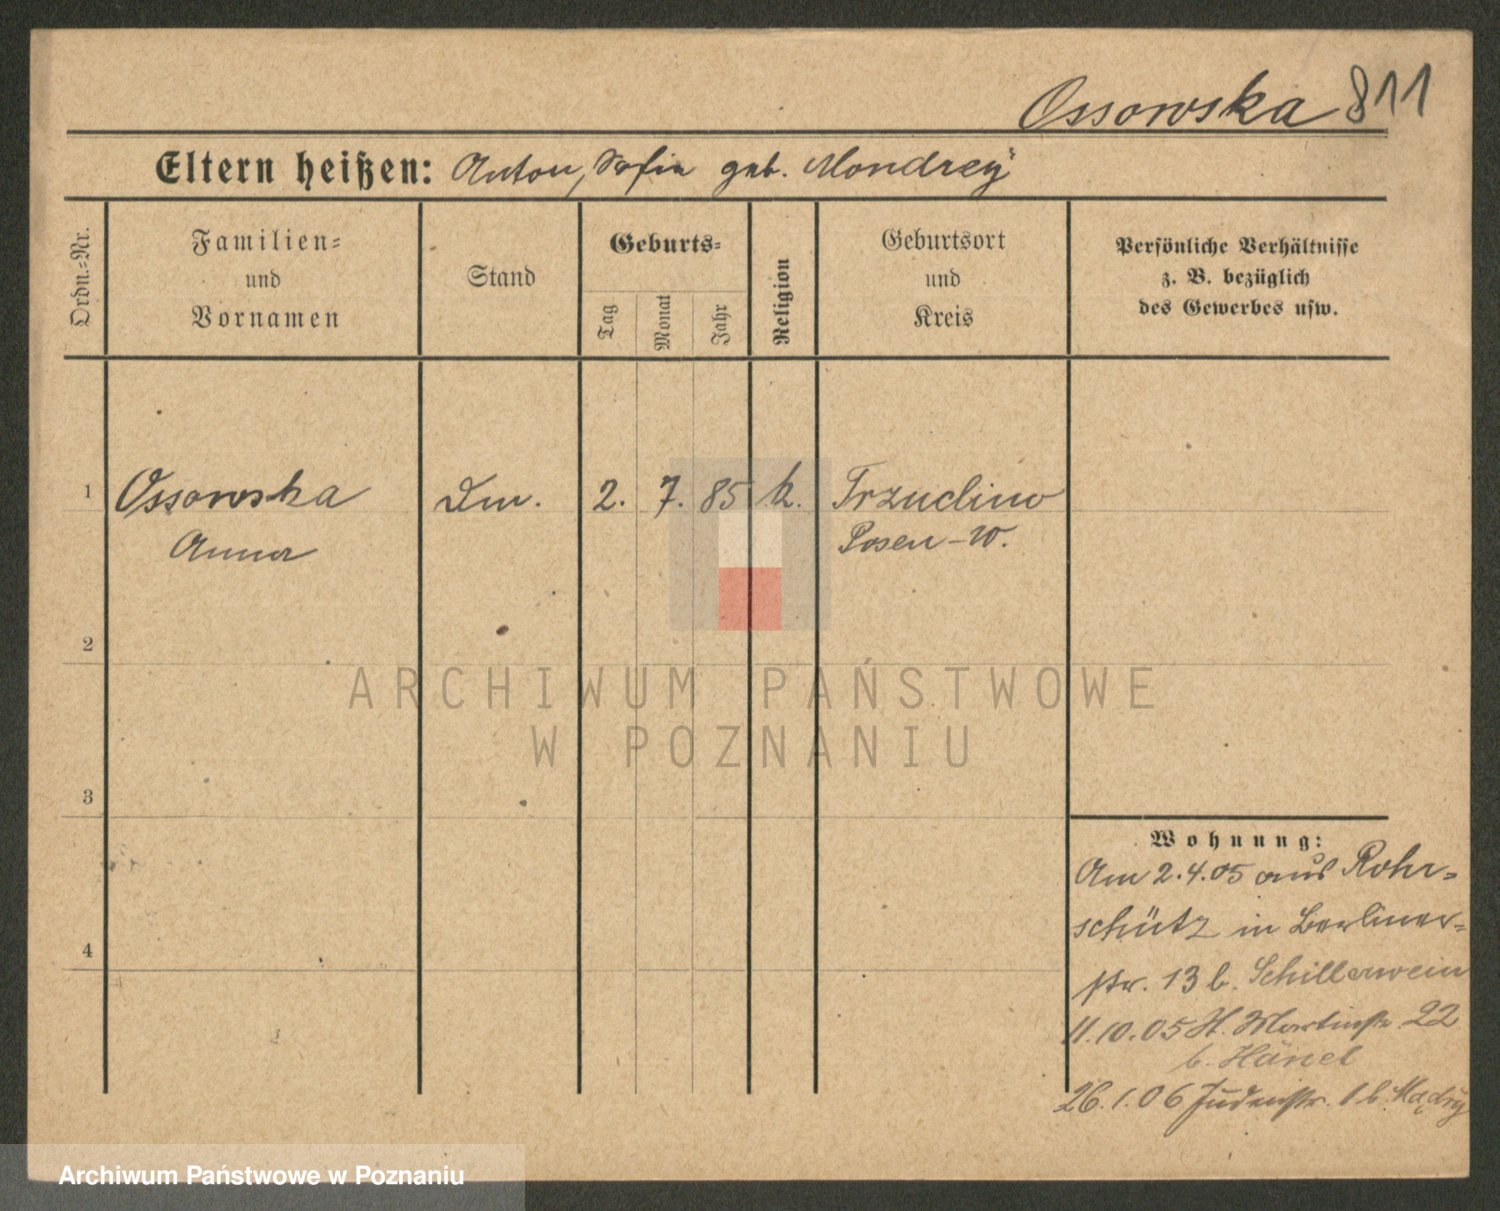 Ossowska 811
Eltern heißen: Anton, Sofia geb. Mondrzy
Ordn.-Nr.
Familien-
und
Vornamen
Stand
Geburts-
Tag
Monat
Jahr
Religion
Geburtsort
und
Kreis
Persönliche Verhältnisse
z. B. bezüglich
des Gewerbes usw.
1 Ossowska Dm. 2. 7. 85 k. Trzuclino
Anna Posen-W.
2
ARCHIWUM PAŃSTWOWE
W POZNANIU
3
Wohnung:
Am 2.4.05 aus Rohr-
schütz in Berliner-
4
str. 13 b. Schillerwein
11.10.05 St. Martinstr 22
b. Hänel
26.1.06 Judenstr. 1 b. Mądry
Archiwum Państwowe w Poznaniu